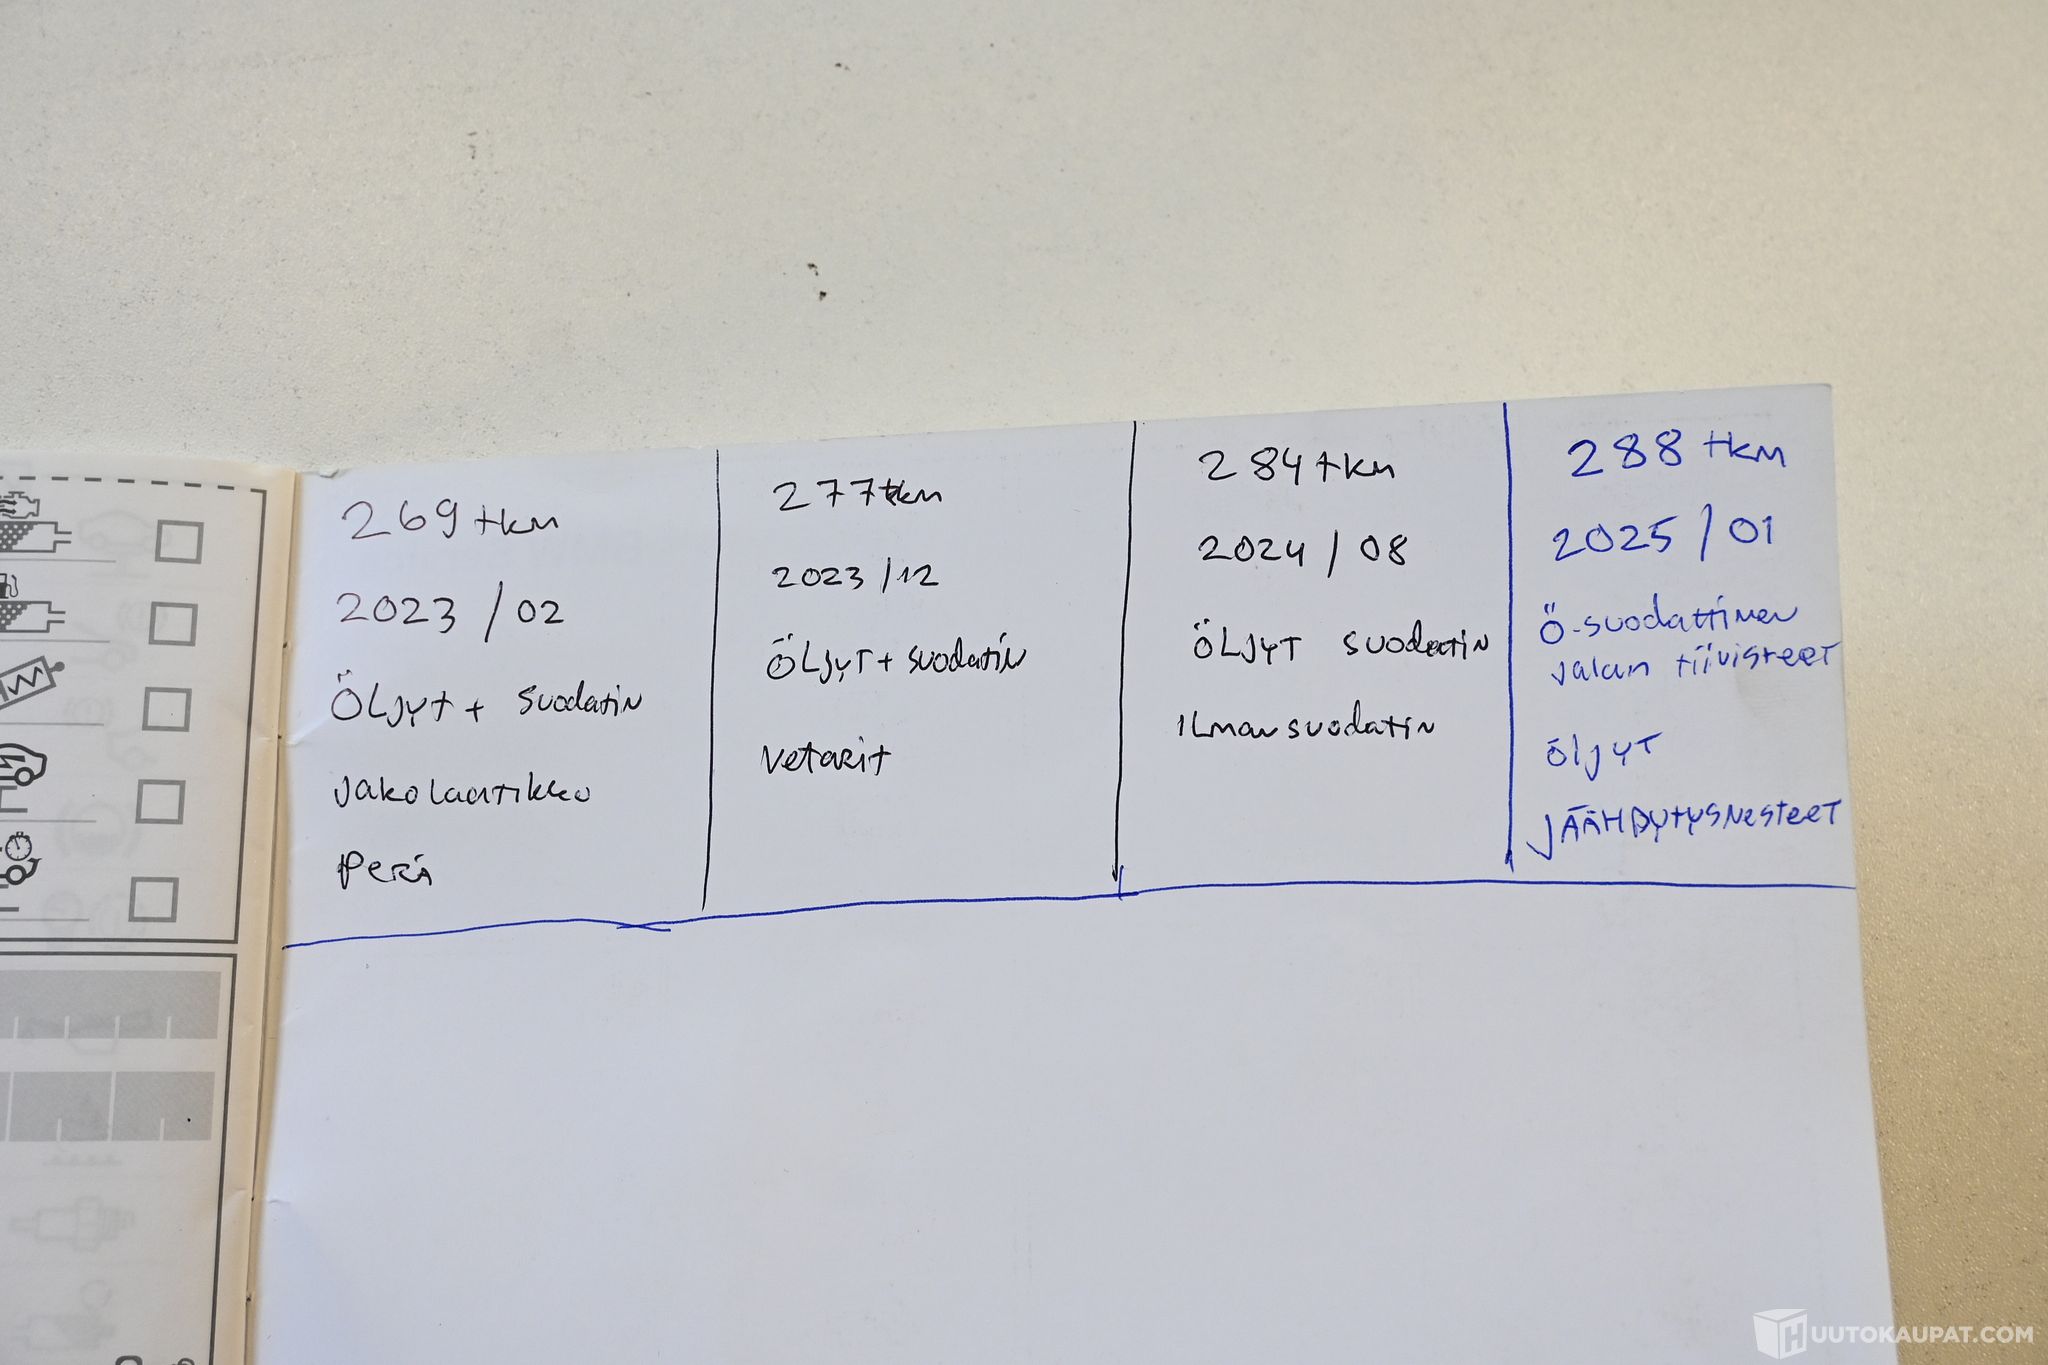 269 tkm
2023 / 02
Öljyt + suodatin
Jakolaatikko
Perä
277 tkm
2023 / 12
Öljyt + suodatin
Vetarit
284 tkm
2024 / 08
Öljyt suodatin
Ilmansuodatin
288 tkm
2025 / 01
Ö-suodattimen
jalan tiivisteet
Öljyt
JÄÄHDYTYSNESTEET
HUUTOKAUPAT.COM